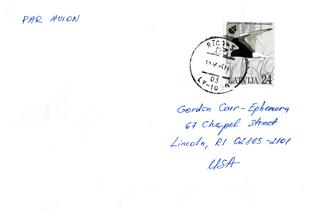 PAR AVION
LATVIJA 24
03
Gordon Carr-Ephemery
67 Chapel Street
Lincoln, RI 02865-2101
USA